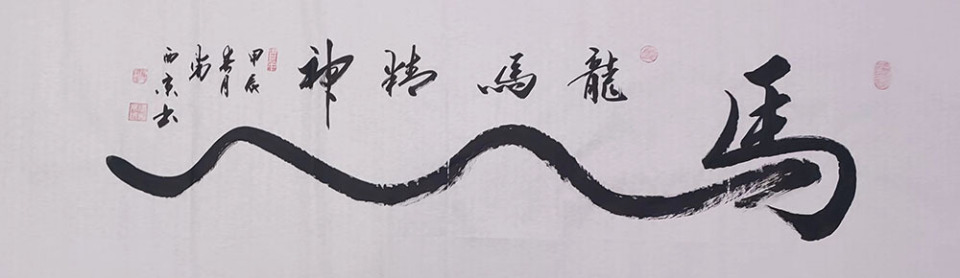 馬
龍馬精神
甲辰
春月
西京书